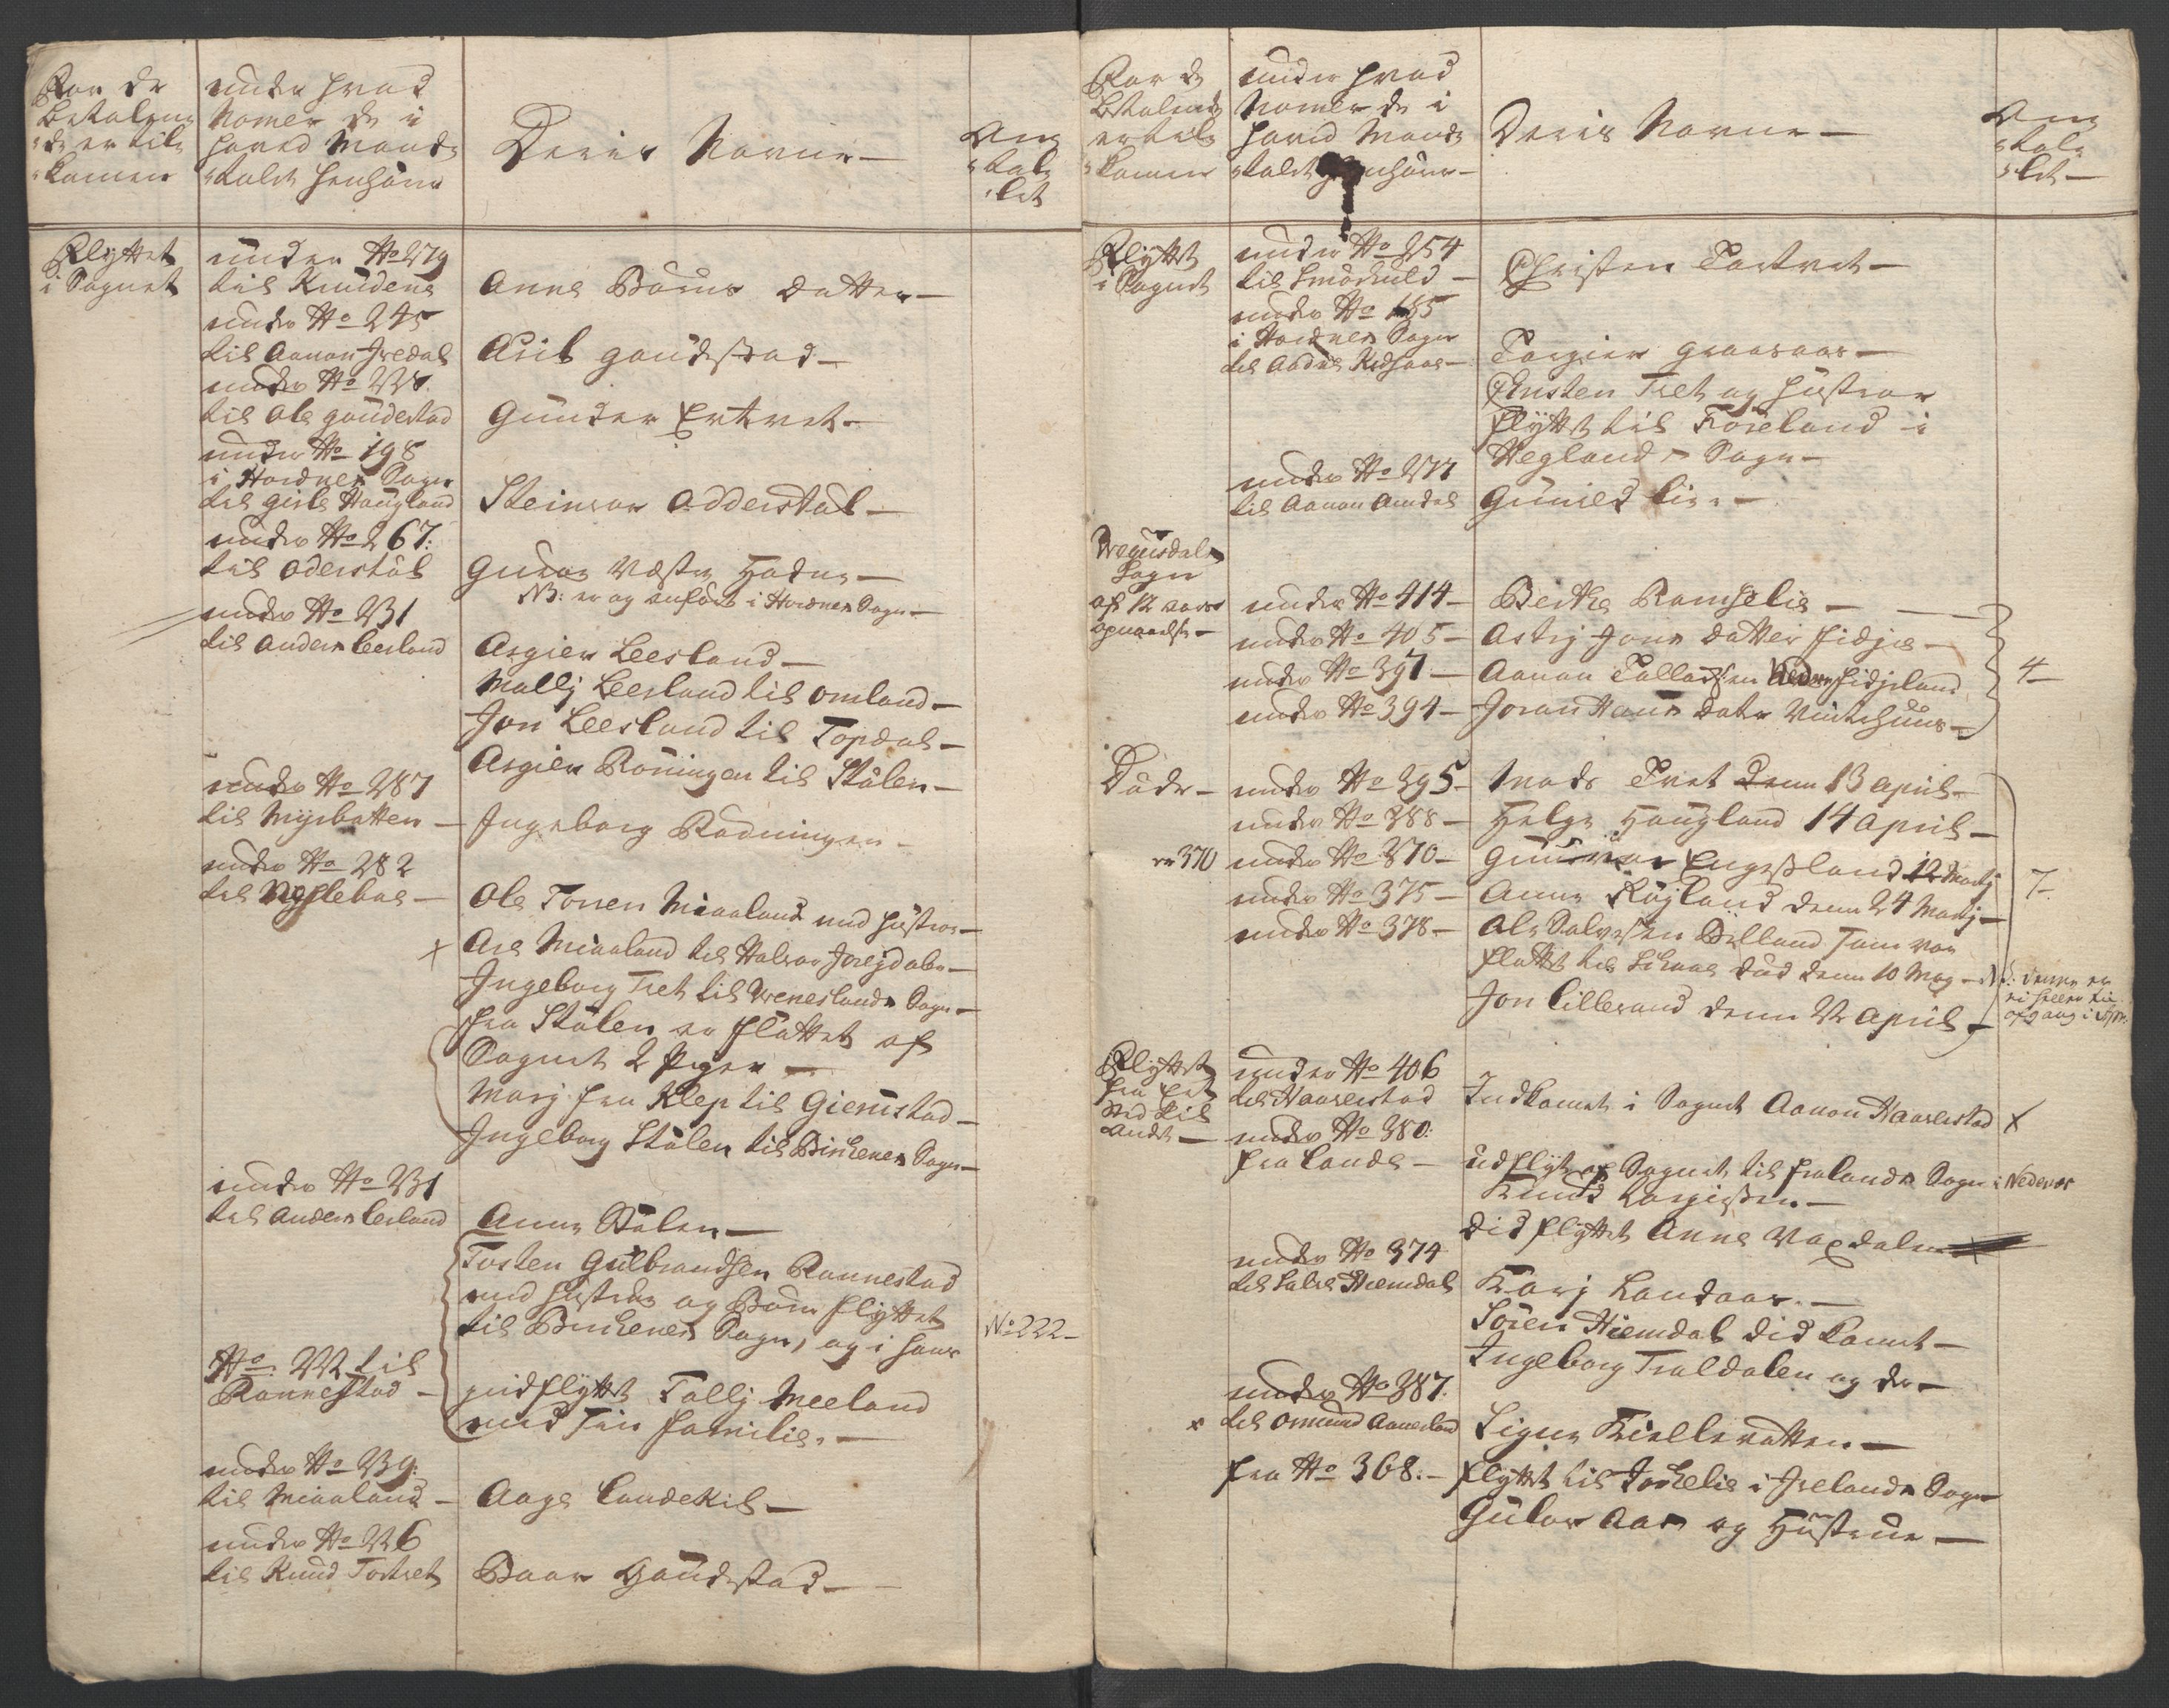 Hvor de
betalen-
de er til-
komen
under hvad
Nomer de i
hoved Mand-
talet henhøre
Deris Navne
An-
tal-
let
Flyttet
i Sognet
under No 279
til Knudene
Anne Børns datter
under No 245
til Aanon Iredal
Asil Gaudestad
under No 228
til Ole Gaudestad
Gunder Ertvet
under No 198
i Hordnes Sogn
til Gisle Haugland
Steinvor Odderstøl
under No 267:
til Oderstøl
Gunor Vestre Hodne
NB: er og anført i Hordnes Sogn
under No 231
til Anders Leesland
Asgier Leesland
Mallj Leesland til Omland
Jon Leesland til Topdal
Asgier Røningen til Stølen
under No 287
til Myrbatten
Ingeborg Rødningen
under No 282
til
Ole Torsen Miaaland med hustroe
x Ase Miaaland til Halvor
Ingeborg Tvet til Veneslands Sogn
fra Stølen er fløttet af
Sognet 2 Piger
Marj fra Klep til Giemstad
Ingeborg Stølen til Birkenes Sogn
under No 231
til Anders Lesland
Anne Stølen
Tosten Gulbrandsen Rannestad
med hustrue og Børn flyttet
til Birkenes Sogn, og i hans
No 222
No 222 til
Rannestad
indflyttet Tallj Meeland
med sin familie
under No 239:
til Miaaland
Aage Landekil
under No 226
til Knud Tortvet
Baar Gaudestad
Hvor de
betalende
er til-
komen
under hvad
Nomer de i
hoved Mand-
talet henhøre
Deris Navne
An-
tal-
let
Flyttet
i Sognet
under No 254
til
Christen Tortvet
under No 185
i Hordnes Sogn
til
Torgier Graasaas
Christen Tvet og hustroe
flyttet til Føreland i
Vegland Sogn
under No 277
til Aanon Omdal
Gunild Lie
Vegusdals
Sogn
af 12 aars
opnaaelse
under No 414
Berthe Ramselie
under No 405
Astrj Jons datter Fidje
under No 397
Aanon Tallachsen Fidjeland
4
under No 394
Joran Hans datr Vintehuus
Døde
under No 395
Mads Tvet denn 13 April
under No 388
Helge Haugland 14 April
370
under No 370
Gunvor Engesland 12 Martj
7
under No 375
Anne Røjland denn 24 Martj
under No 378
Ole Salvesen Bielland som var
fløttet til død denn 10 Maj
NB: denne er
ei heller til
afgang i
Jon Lillesand denn 22 April
Flyttet
fra Et
Sted til
andet
under No 406
til Haarestad
Indkomet i Sognet Aanon Haarestad x
under No 380:
fra Lande
udflyt af Sognet til Frolands Sogn i Nedenes
Knud Torgiersen
did flyttet Anne Vaxdalen
under No 374
til Hiemdal
Karj Landaas
Søren Hiemdal did komt
Ingeborg Traldalen og der
under No 387.
x til Omund Aaneland
Signe Kiellevatten
fra No 368.
flyttet til Torhelie i Ivelands Sogn
Gulov Aas og Hustrue